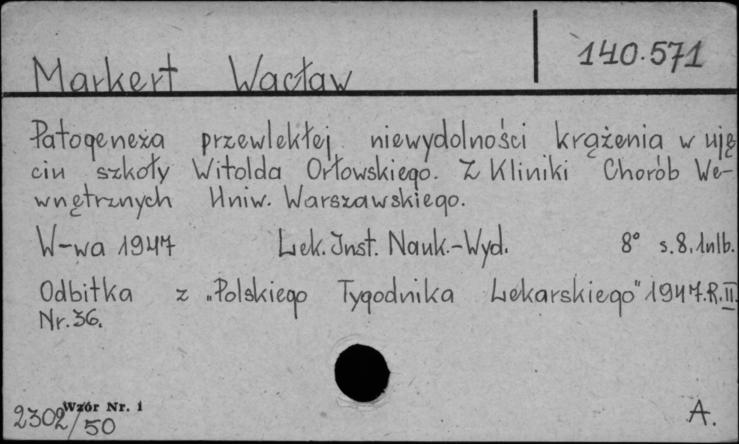 140.571
Markert Wacław
Patogeneza przewlekłej niewydolności krążenia w uję
ciu szkoły Witolda Orłowskiego. Z Kliniki Chorób We-
wnętrznych Uniw. Warszawskiego.
W-wa 1947 Lek. Inst. Nauk.-Wyd. 8° s.8, 1nlb.
Odbitka z „Polskiego Tygodnika Lekarskiego" 1947.R.II.
Nr.36.
Wzór Nr. 1
2302/50
A.